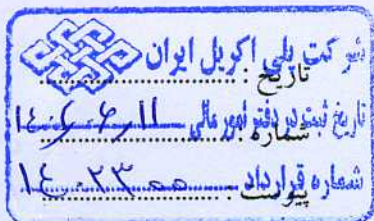 شرکت پلی اکریل ایران
تاریخ :
تاریخ ثبت در دفتر امور مالی
شماره :
شماره قرارداد ۱۴۰۰۲۳۰۰
پیوست :